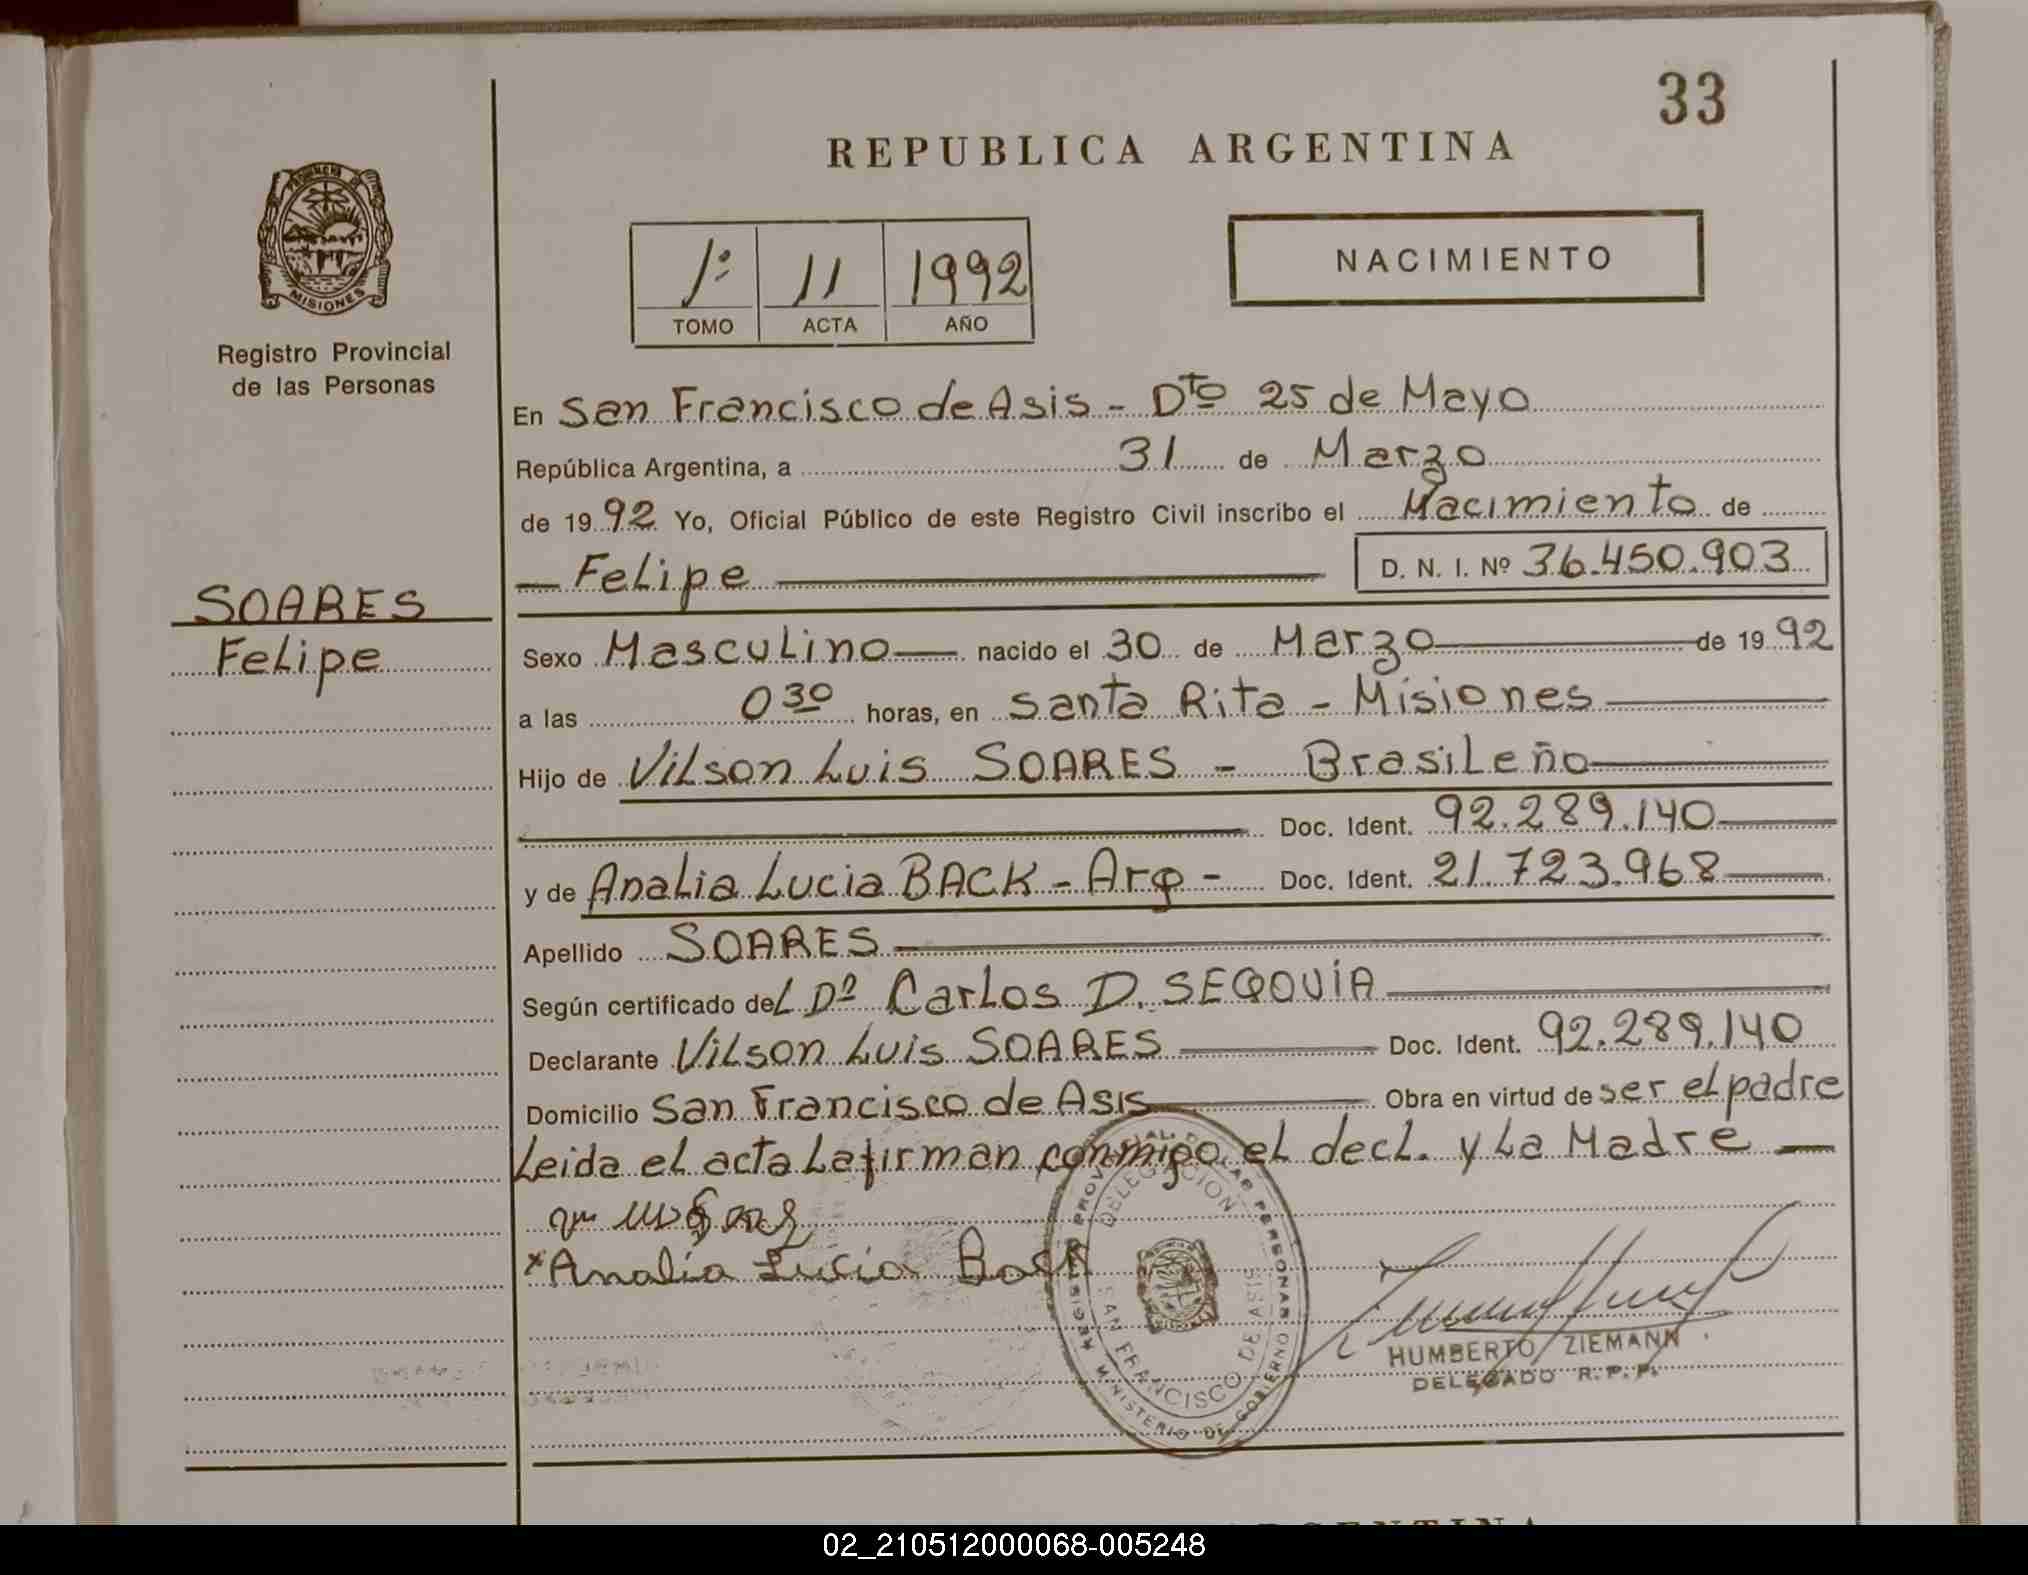 33
REPUBLICA ARGENTINA
PROVINCIA DE
MISIONES
Registro Provincial
de las Personas
1º 11 1992
TOMO ACTA AÑO
NACIMIENTO
SOARES
Felipe
En San Francisco de Asis - Dto 25 de Mayo
República Argentina, a 31 de Marzo
de 1992 Yo, Oficial Público de este Registro Civil inscribo el Nacimiento de
Felipe D. N. I. Nº 36.450.903
Sexo Masculino nacido el 30 de Marzo de 1992
a las 0 30 horas, en Santa Rita - Misiones
Hijo de Vilson Luis SOARES - Brasileño
Doc. Ident. 92.289.140
y de Analia Lucia BACK - Arg - Doc. Ident. 21.723.968
Apellido SOARES
Según certificado del Dº Carlos D. SEGOVIA
Declarante Vilson Luis SOARES Doc. Ident. 92.289.140
Domicilio San Francisco de Asis Obra en virtud de ser el padre
Leida el acta la firman conmigo el decl. y la Madre
*Analia Lucia Back
DELEGACION
SAN FRANCISCO DE ASIS
MINISTERIO DE GOBIERNO
HUMBERTO ZIEMANN
DELEGADO R. P. P.
ARGENTINA
02_210512000068-005248